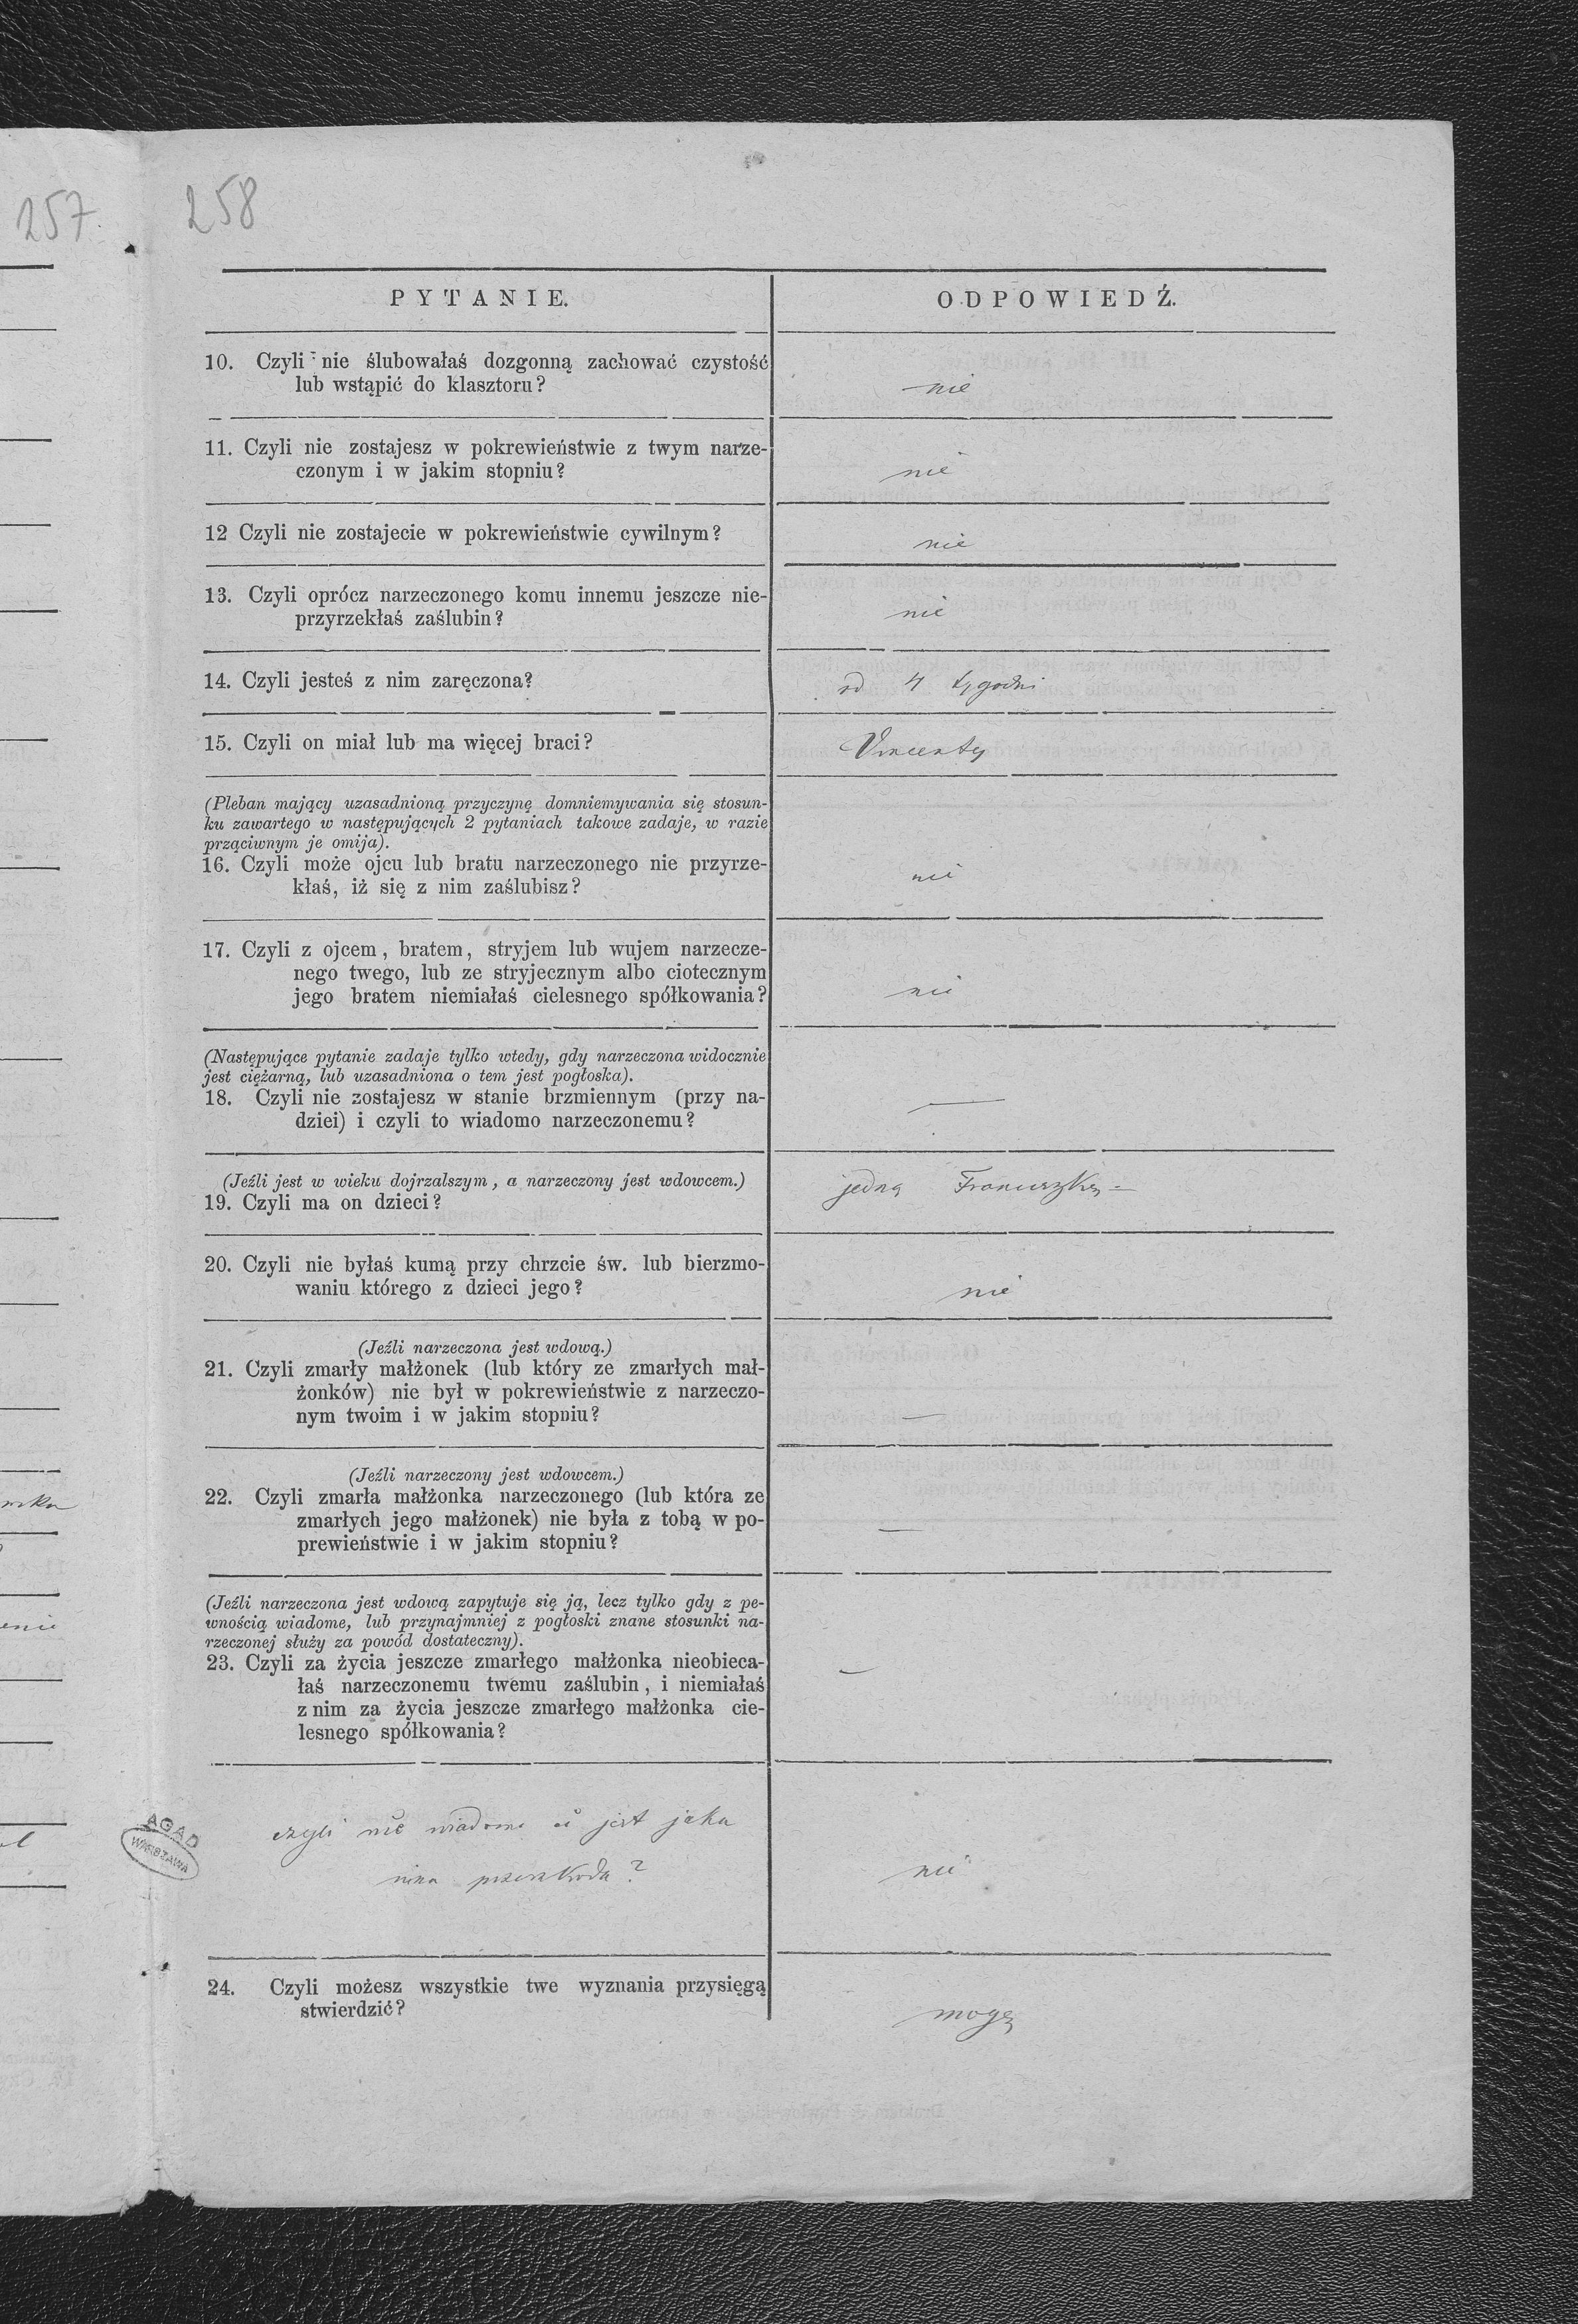 257.
258
PYTANIE.
ODPOWIEDŹ.
10. Czyli nie ślubowałaś dozgonną zachować czystość
lub wstąpić do klasztoru?
nie
11. Czyli nie zostajesz w pokrewieństwie z twym narze-
czonym i w jakim stopniu?
nie
12 Czyli nie zostajecie w pokrewieństwie cywilnym?
nie
13. Czyli oprócz narzeczonego komu innemu jeszcze nie-
przyrzekłaś zaślubin?
nie
14. Czyli jesteś z nim zaręczona?
od 4 tygodni
15. Czyli on miał lub ma więcej braci?
Vincenty
(Pleban mający uzasadnioną przyczynę domniemywania się stosun-
ku zawartego w następujących 2 pytaniach takowe zadaje, w razie
prząciwnym je omija).
16. Czyli może ojcu lub bratu narzeczonego nie przyrze-
kłaś, iż się z nim zaślubisz?
nie
17. Czyli z ojcem, bratem, stryjem lub wujem narzecze-
nego twego, lub ze stryjecznym albo ciotecznym
jego bratem niemiałaś cielesnego spółkowania?
nie
(Następujące pytanie zadaje tylko wtedy, gdy narzeczona widocznie
jest ciężarną, lub uzasadniona o tem jest pogłoska).
18. Czyli nie zostajesz w stanie brzmiennym (przy na-
dziei) i czyli to wiadomo narzeczonemu?
—
(Jeźli jest w wieku dojrzalszym, a narzeczony jest wdowcem.)
19. Czyli ma on dzieci?
jedną Franciszkę =
20. Czyli nie byłaś kumą przy chrzcie św. lub bierzmo-
waniu którego z dzieci jego?
nie
(Jeźli narzeczona jest wdową.)
21. Czyli zmarły małżonek (lub który ze zmarłych mał-
żonków) nie był w pokrewieństwie z narzeczo-
nym twoim i w jakim stopniu?
—
(Jeźli narzeczony jest wdowcem.)
22. Czyli zmarła małżonka narzeczonego (lub która ze
zmarłych jego małżonek) nie była z tobą w po-
prewieństwie i w jakim stopniu?
—
(Jeźli narzeczona jest wdową zapytuje się ją, lecz tylko gdy z pe-
wnością wiadome, lub przynajmniej z pogłoski znane stosunki na-
rzeczonej służy za powód dostateczny).
23. Czyli za życia jeszcze zmarłego małżonka nieobieca-
łaś narzeczonemu twemu zaślubin, i niemiałaś
z nim za życia jeszcze zmarłego małżonka cie-
lesnego spółkowania?
—
czyli nie wiadomo ci jest jaka
inna przeszkoda?
nie
AGAD
WARSZAWA
24. Czyli możesz wszystkie twe wyznania przysięgą
stwierdzić?
mogę